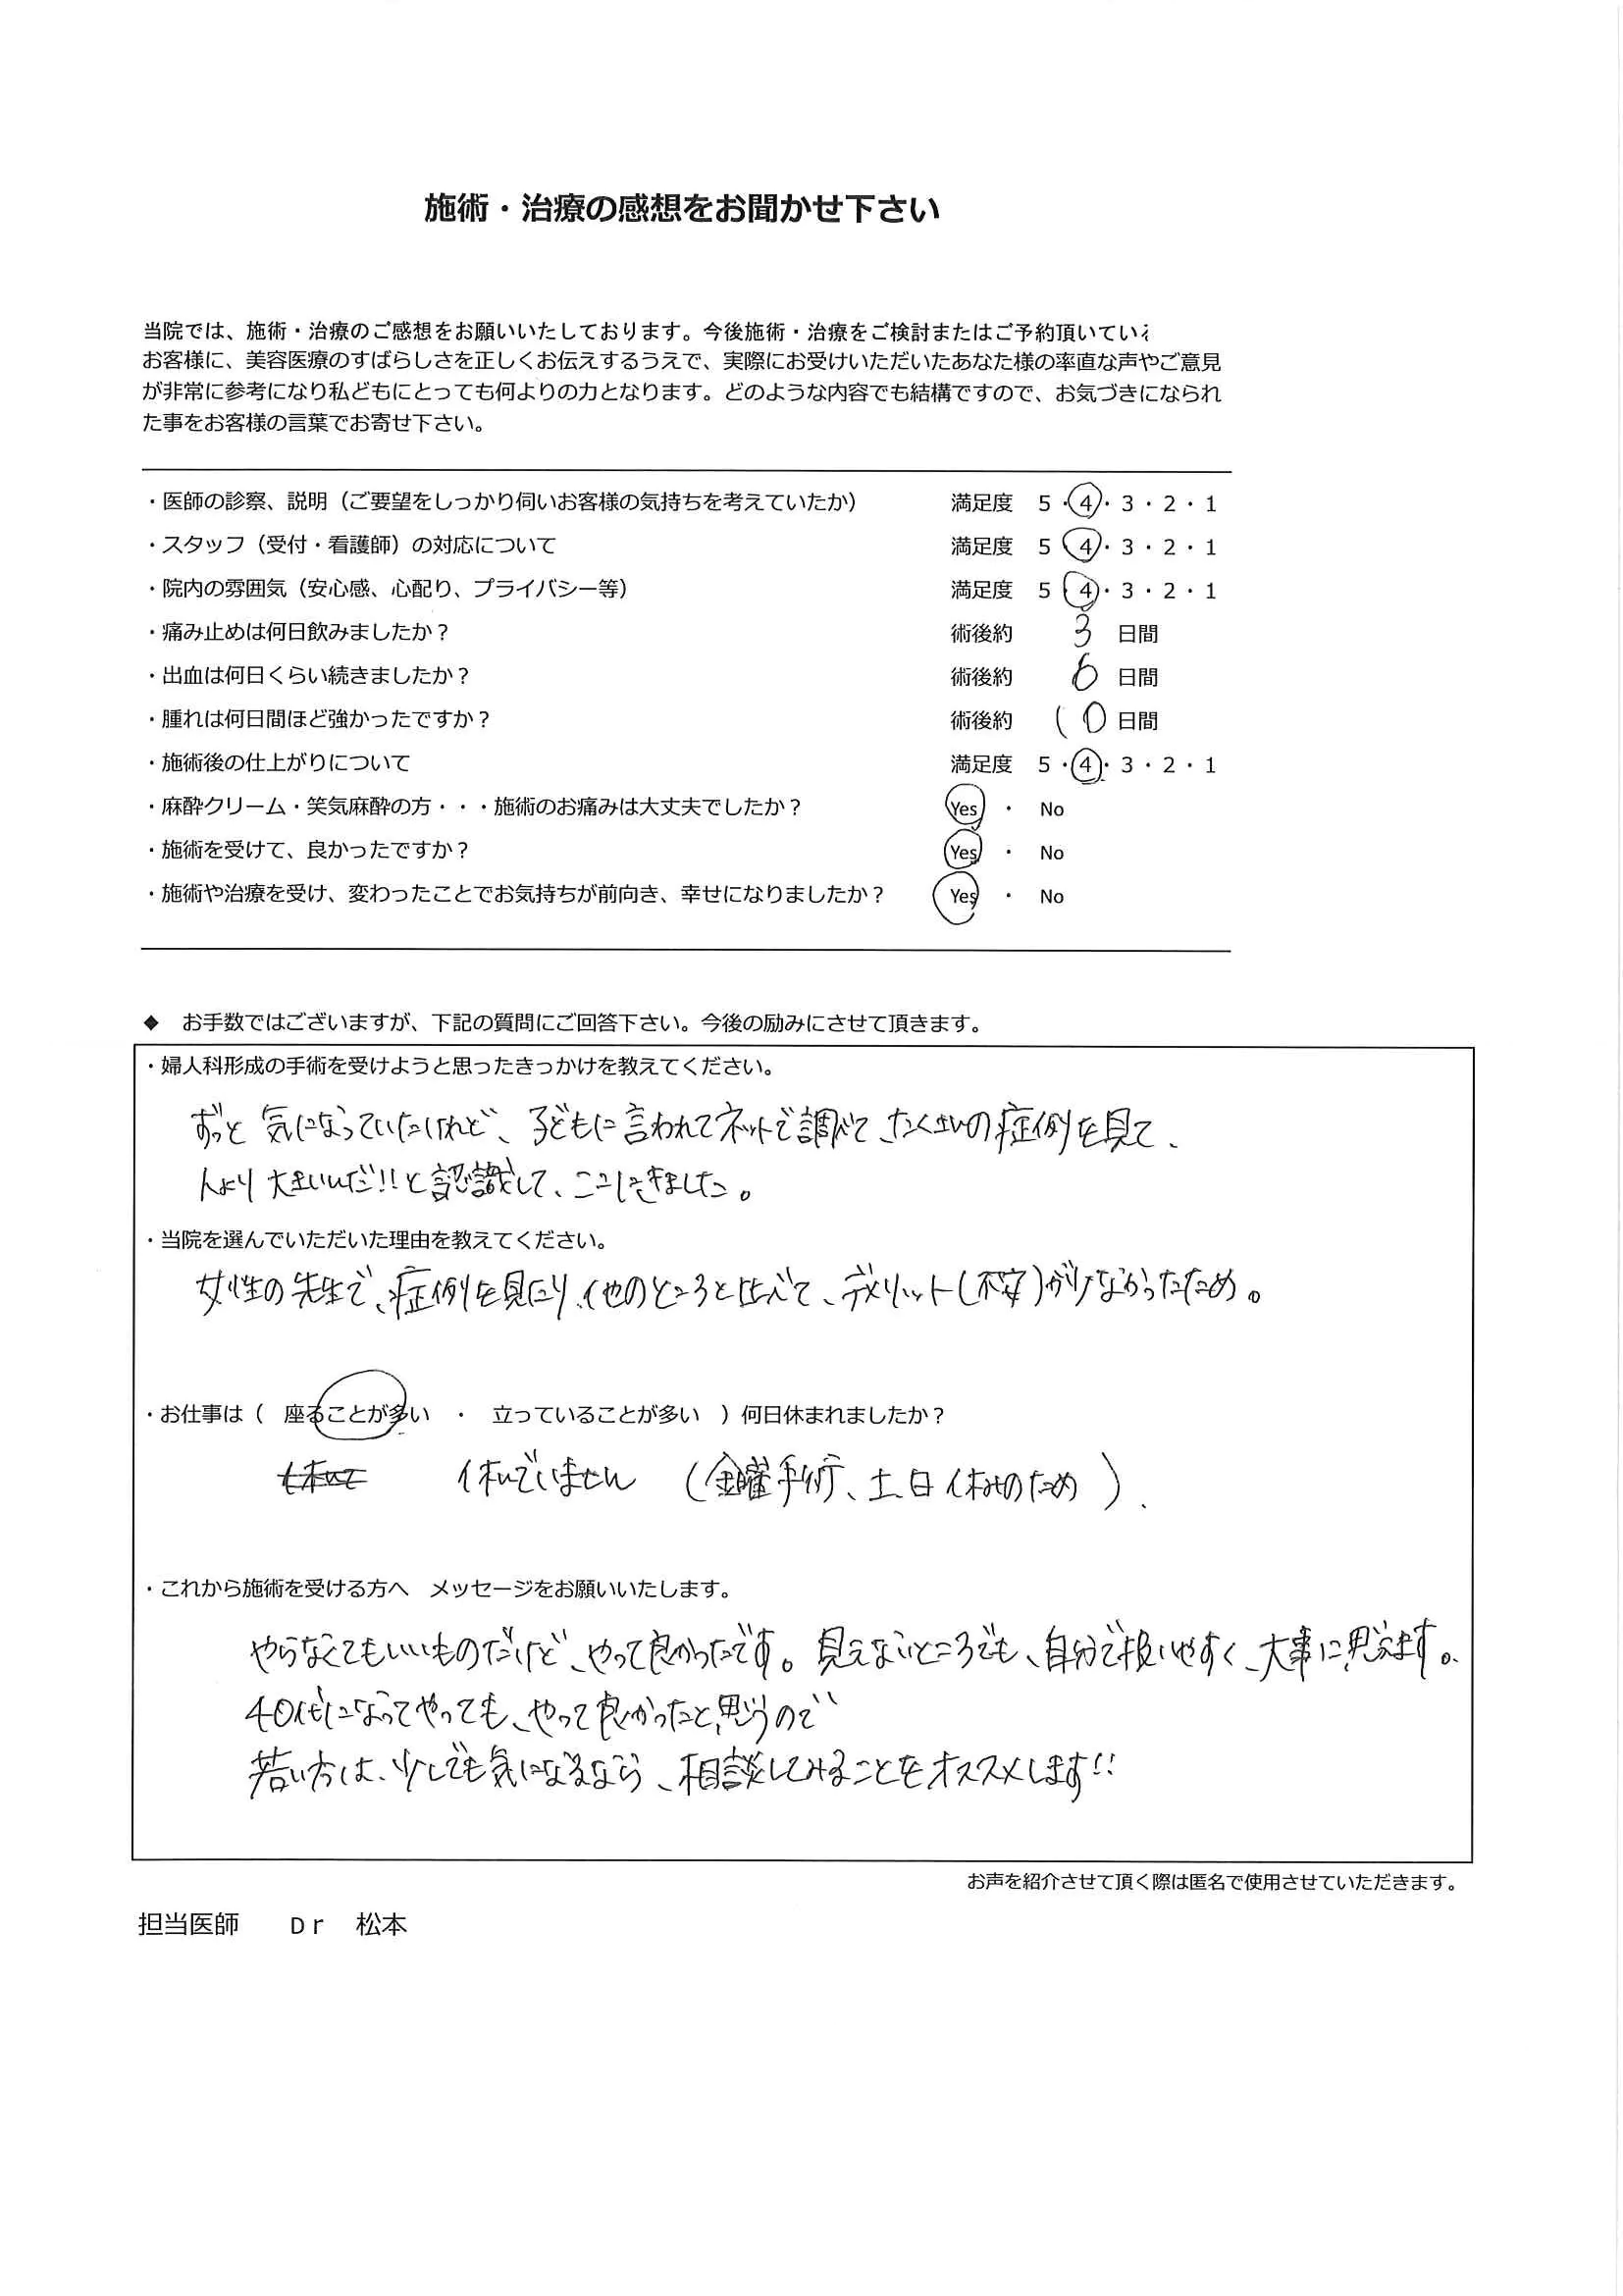 施術・治療の感想をお聞かせ下さい
当院では、施術・治療のご感想をお願いいたしております。今後施術・治療をご検討またはご予約頂いている
お客様に、美容医療のすばらしさを正しくお伝えするうえで、実際にお受けいただいたあなた様の率直な声やご意見
が非常に参考になり私どもにとっても何よりの力となります。どのような内容でも結構ですので、お気づきになられ
た事をお客様の言葉でお寄せ下さい。
・医師の診察、説明（ご要望をしっかり伺いお客様の気持ちを考えていたか） 満足度 5・4・3・2・1
・スタッフ（受付・看護師）の対応について 満足度 5・4・3・2・1
・院内の雰囲気（安心感、心配り、プライバシー等） 満足度 5・4・3・2・1
・痛み止めは何日飲みましたか？ 術後約 3 日間
・出血は何日くらい続きましたか？ 術後約 6 日間
・腫れは何日間ほど強かったですか？ 術後約 10 日間
・施術後の仕上がりについて 満足度 5・4・3・2・1
・麻酔クリーム・笑気麻酔の方・・・施術のお痛みは大丈夫でしたか？ Yes ・ No
・施術を受けて、良かったですか？ Yes ・ No
・施術や治療を受け、変わったことでお気持ちが前向き、幸せになりましたか？ Yes ・ No
◆ お手数ではございますが、下記の質問にご回答下さい。今後の励みにさせて頂きます。
・婦人科形成の手術を受けようと思ったきっかけを教えてください。
ずっと気になっていたけれど、子どもに言われてネットで調べて、たくさんの症例を見て、
人より大きいんだ!!と認識して、ここにきました。
・当院を選んでいただいた理由を教えてください。
女性の先生で、症例を見たり、他のところと比べて、デメリット(不安)が少なかったため。
・お仕事は（ 座ることが多い ・ 立っていることが多い ）何日休まれましたか？
休んでいません (金曜手術、土日休みのため).
・これから施術を受ける方へ メッセージをお願いいたします。
やらなくてもいいものだけど、やって良かったです。見えないところでも、自分で扱いやすく、大事に思えます。
40代になってやっても、やって良かったと思うので
若い方は、少しでも気になるなら、相談してみることをオススメします!!
お声を紹介させて頂く際は匿名で使用させていただきます。
担当医師 Dr 松本